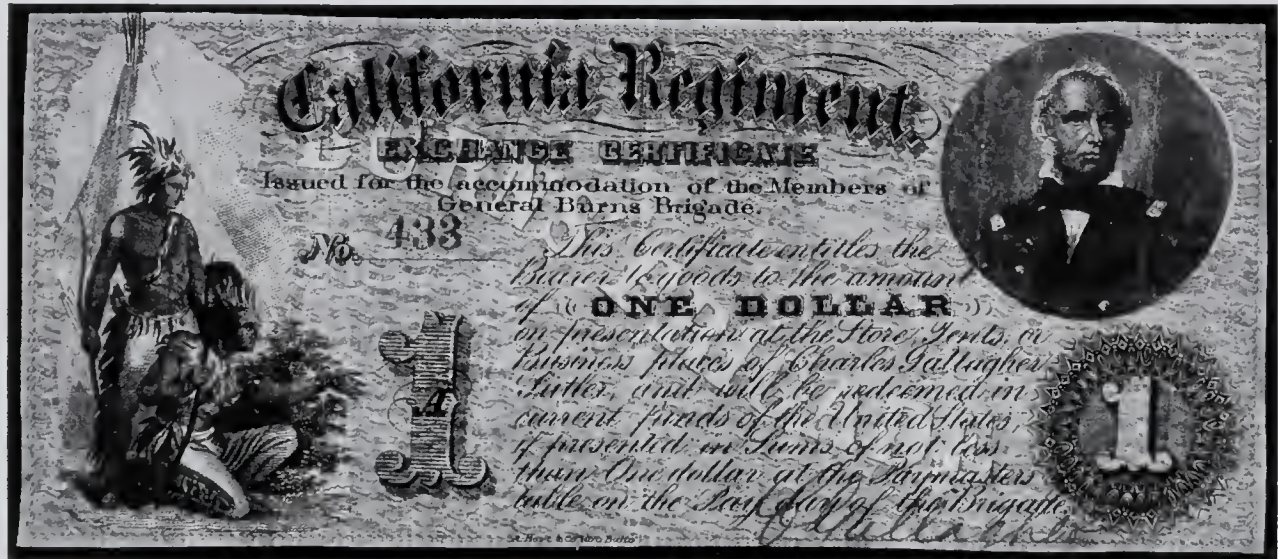 California Regiment
EXCHANGE CERTIFICATE
Issued for the accommodation of the Members of
General Burns Brigade.
No. 433
This Certificate entitles the
Bearer to goods to the amount
of ONE DOLLAR
on presentation at the Store, Tents, or
Business places of Charles Gallagher
Sutler, and will be redeemed in
current funds of the United States,
if presented in Sums of not less
than One dollar at the Paymasters
table on the Pay day of the Brigade.
1
A
1